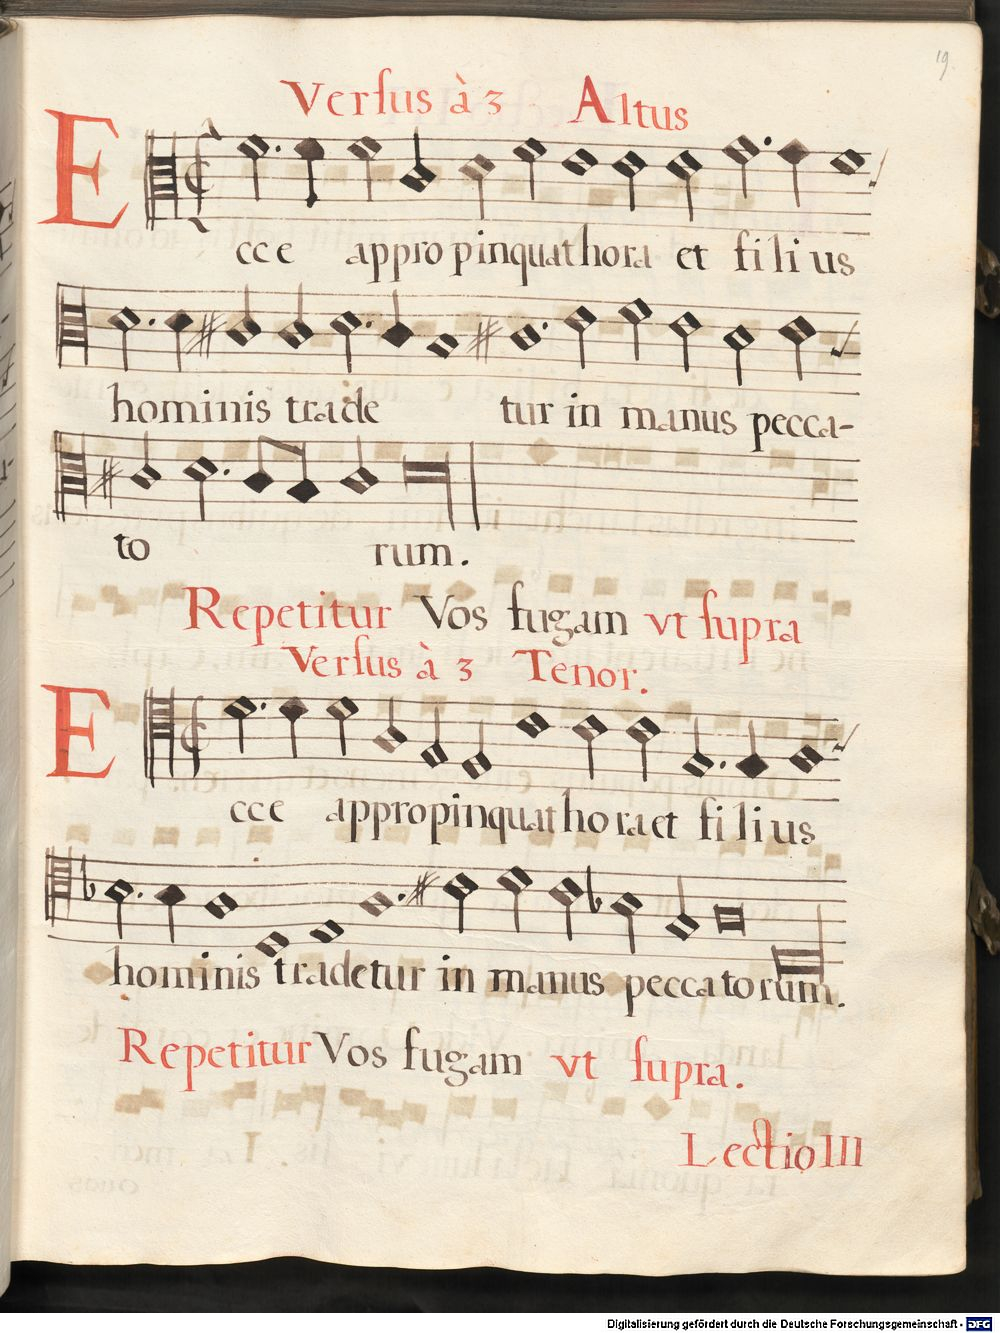 19.
Versus à 3 Altus
Ecce appropinquat hora et filius
hominis trade tur in manus pecca-
to rum.
Repetitur Vos fugam vt supra
Versus à 3 Tenor.
Ecce appropinquat hora et filius
hominis tradetur in manus peccatorum.
Repetitur Vos fugam vt supra.
Lectio III
Digitalisierung gefördert durch die Deutsche Forschungsgemeinschaft - DFG